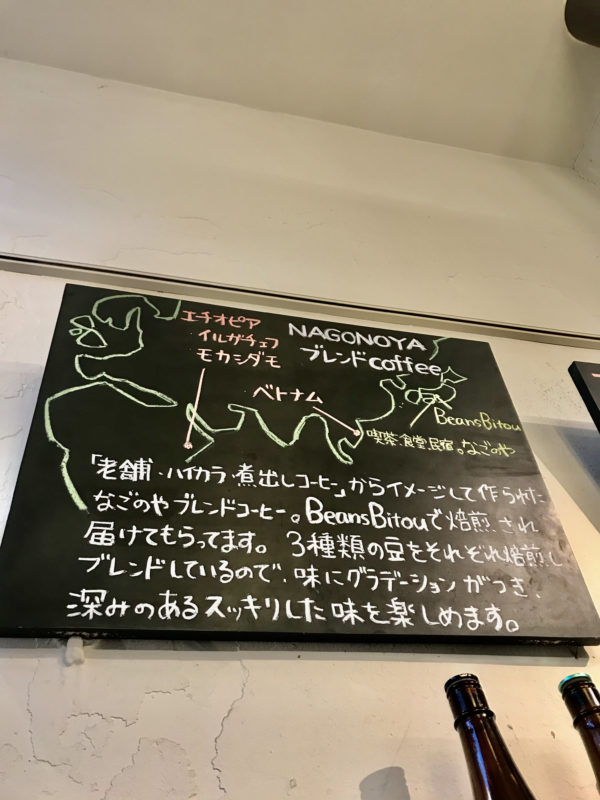 エチオピア
イルガチェフ
モカシダモ
NAGONOYA
ブレンドcoffee
ベトナム
BeansBitou
喫茶、食堂、民宿。なごのや
「老舗・ハイカラ・煮出しコーヒー」からイメージして作られた
なごのやブレンドコーヒー。BeansBitouで焙煎され
届けてもらってます。3種類の豆をそれぞれ焙煎し
ブレンドしているので、味にグラデーションがつき、
深みのあるスッキリした味を楽しめます。